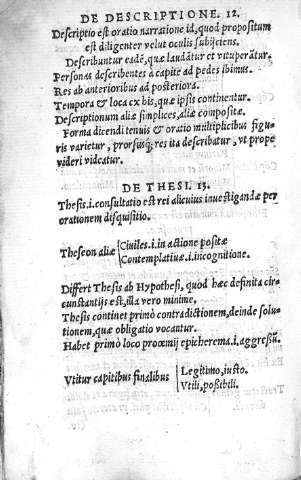 DE DESCRIPTIONE. 12.
Descriptio est oratio narratione id, quod propositum
est diligenter velut oculis subijciens.
Describuntur eadẽ, quæ laudãtur et vituperãtur.
Personas describentes à capite ad pedes ibimus.
Res ab anterioribus ad posteriora.
Tempora & loca ex his, quæ ipsis continentur.
Descriptionum aliæ simplices, aliæ compositæ.
Forma dicendi tenuis & oratio multiplicibus figu-
ris varietur, prorsusq́; res ita describatur, vt prope
videri videatur.
DE THESI. 13.
Thesis .i. consultatio est rei alicuius inuestigandæ per
orationem disquisitio.
Theseon aliæ
Ciuiles .i. in actione positæ
Contemplatiuæ .i. incognitione.
Differt Thesis ab Hypothesi, quòd hæc definita cir-
cunstantijs est, illa vero minime,
Thesis continet primò contradictionem, deinde solu-
tionem, quæ obligatio vocantur.
Habet primò loco proœmij epicherema .i. aggressũ.
Vtitur capitibus finalibus
Legitimo, iusto.
Vtili, possibili.